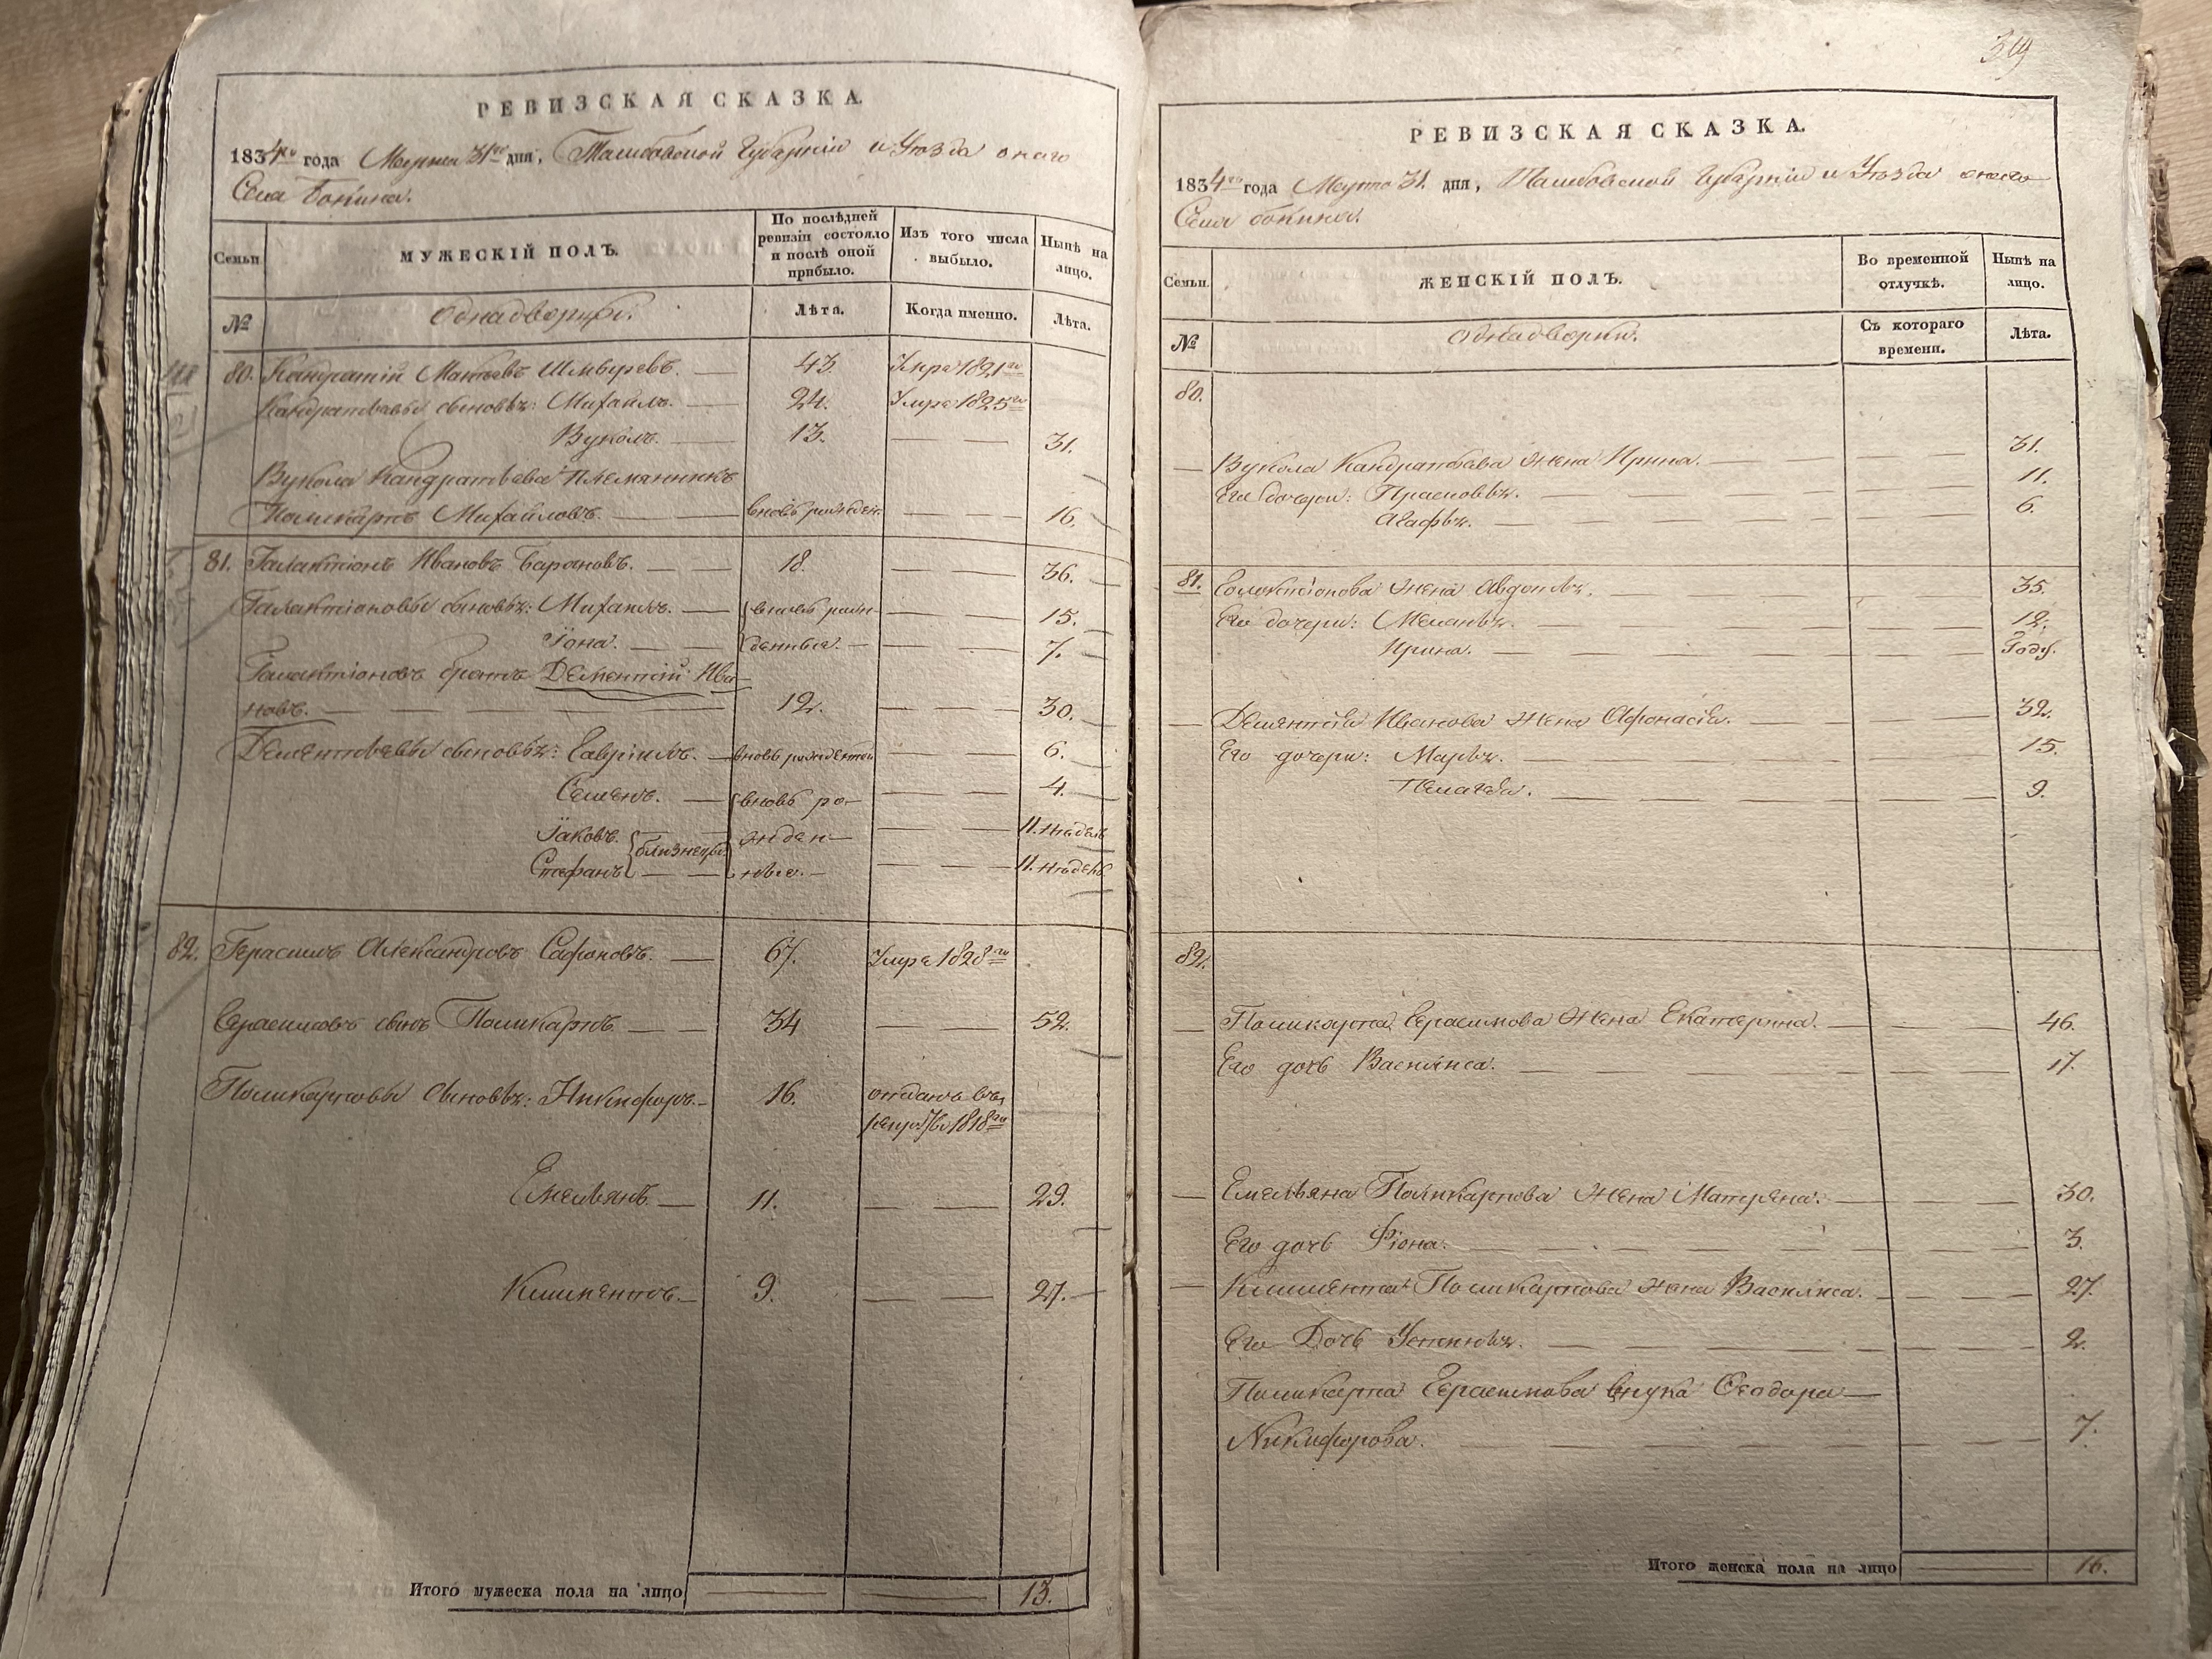 РЕВИЗСКАЯ СКАЗКА.
1834го года Марта 31го дня, Тамбовской Губерніи и Уѣзда онаго
Села Бокина.
Семьи
МУЖЕСКІЙ ПОЛЪ.
По послѣдней ревизіи состояло и послѣ оной прибыло.
Изъ того числа выбыло.
Нынѣ на лицо.
№
Однадворцы.
Лѣта.
Когда именно.
Лѣта.
80. Кандратій Матвѣевъ 43. Умре 1821го
Кандратьевы сыновья: Михаилъ. 24. Умре 1825го
Вуколъ. 13. 31.
Вукола Кандратьева племянникъ
Поликарпъ Михайловъ. вновь рожден. 16.
81. Галактіонъ Ивановъ Барановъ. 18. 36.
Галактіоновы сыновья: Михаилъ. вновь рож- 15.
Іона. денные. 7.
Галактіоновъ братъ Дементій Ива-
новъ. 12. 30.
Дементьевы сыновья: Гавріилъ. вновь рожденной 6.
Семенъ. вновь ро- 4.
Іаковъ. близнецы жден- 11. недель
Стефанъ ные. 11. недель
82. Герасимъ Александровъ Сафоновъ. 67. Умре 1828го
Герасимовъ сынъ Поликарпъ. 34 52.
Поликарповы сыновья: Никифоръ. 16. отданъ въ
рекруты 1818го
Емельянъ. 11. 29.
Климентъ. 9. 27.
Итого мужеска пола на лицо 13.
319
РЕВИЗСКАЯ СКАЗКА.
1834го года Марта 31. дня, Тамбовской Губерніи и Уѣзда онаго
Села Бокина.
Семьи.
ЖЕНСКІЙ ПОЛЪ.
Во временной отлучкѣ.
Нынѣ на лицо.
№
Однадворки.
Съ котораго времени.
Лѣта.
80.
Вукола Кандратьева жена Ирина. 31.
Его дочери: Прасковья. 11.
Агафья. 6.
81. Галактіонова жена Авдотья. 35.
Его дочери: Меланья. 12.
Ирина. Году.
Дементія Иванова жена Афонасія. 32.
Его дочери: Марья. 15.
Пелагея. 9.
82.
Поликарпа Герасимова жена Екатерина. 46.
Его дочь Василиса. 17.
Емельяна Поликарпова жена Матрена. 30.
Его дочь Фіона. 3.
Климента Поликарпова жена Василиса. 27.
Его Дочь Устинья. 2.
Поликарпа Герасимова внука Феодора
Никифорова. 7.
Итого женска пола на лицо 16.